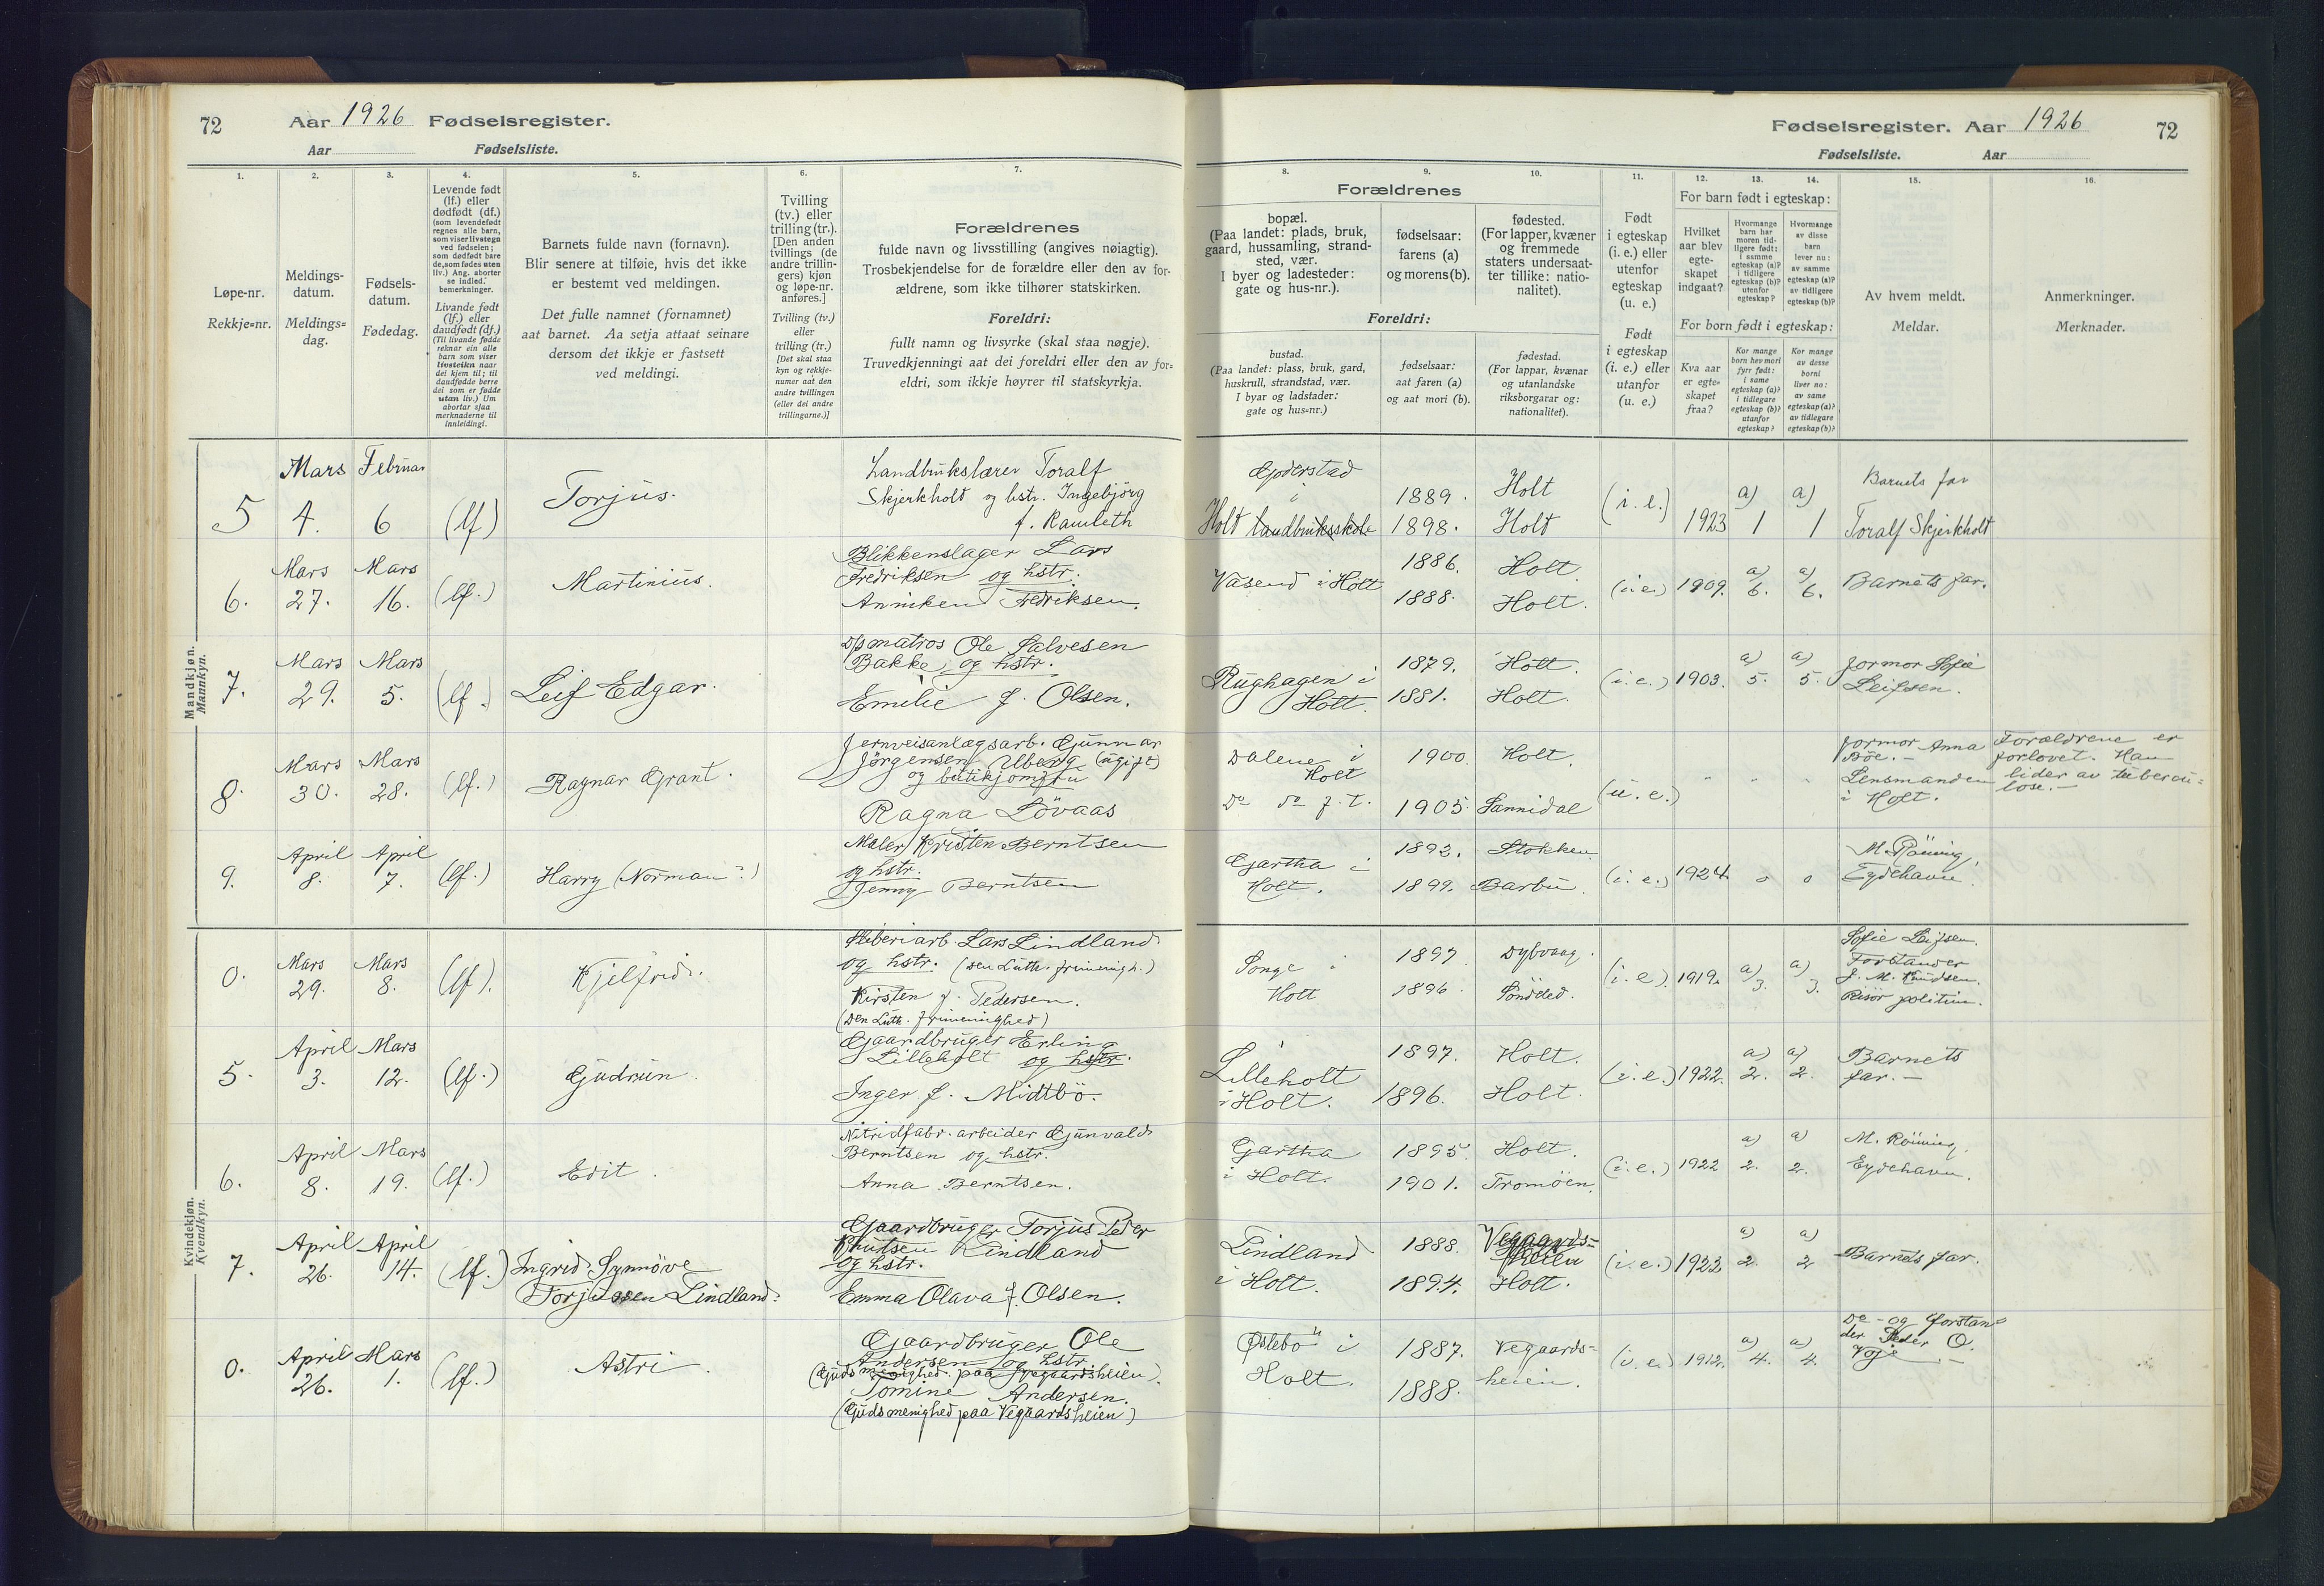 72 Aar 1926 Fødselsregister.
Aar Fødselsliste.
1. 2. 3. 4. 5. 6. 7.
Løpe-nr.
Rekkje=nr.
Meldings-
datum.
Meldings=
dag.
Fødsels-
datum.
Fødedag.
Levende født
(lf.) eller
dødfødt (df.)
(som levendefødt
regnes alle barn,
som viser livstegn
ved fødselen;
som dødfødt bare
de, som fødes uten
liv.) Ang. aborter
se indled.
bemerkninger.
Livande født
(lf.) eller
daudfødt (df.)
(Til livande fødde
reknar ein alle
barn som viser
livsteikn naar
dei kjem til; til
daudfødde berre
dei som er fødde
utan liv.) Um
abortar sjaa
merknaderne til
innleidingi.
Barnets fulde navn (fornavn).
Blir senere at tilføie, hvis det ikke
er bestemt ved meldingen.
Det fulle namnet (fornamnet)
aat barnet. Aa setja attaat seinare
dersom det ikkje er fastsett
ved meldingi.
Tvilling
(tv.) eller
trilling (tr.).
[Den anden
tvillings (de
andre trillin-
gers) kjøn
og løpe-nr.
anføres.]
Tvilling (tv.)
eller
trilling (tr.)
[Det skal staa
kyn og rekkje-
numer aat den
andre tvillingen
(eller dei andre
trillingarne.)]
Forældrenes
fulde navn og livsstilling (angives nøiagtig).
Trosbekjendelse for de forældre eller den av for-
ældrene, som ikke tilhører statskirken.
Foreldri:
fullt namn og livsyrke (skal staa nøgje).
Truvedkjenningi aat dei foreldri eller den av for=
eldri, som ikkje høyrer til statskyrkja.
Fødselsregister. Aar 1926 72
Fødselsliste. Aar
8. 9. 10. 11. 12. 13. 14. 15. 16.
Forældrenes
bopæl.
(Paa landet: plads, bruk,
gaard, hussamling, strand-
sted, vær.
I byer og ladesteder:
gate og hus-nr.).
fødselsaar:
farens (a)
og morens (b).
fødested.
(For lapper, kvæner
og fremmede
staters undersaat-
ter tillike: natio-
nalitet).
Foreldri:
bustad.
(Paa landet: plass, bruk, gard,
huskrull, strandstad, vær.
I byar og ladstader:
gate og hus=nr.)
fødselsaar:
aat faren (a)
og aat mori (b).
fødestad.
(For lappar, kvænar
og utanlandske
riksborgarar og:
nationalitet).
Født
i egteskap
(i. e.) eller
utenfor
egteskap
(u. e.)
Født
i egteskap
(i. e.) eller
utanfor
(u. e.)
For barn født i egteskap:
Hvilket
aar blev
egte-
skapet
indgaat?
Hvormange
barn har
moren tid-
ligere født:
i samme
egteskap (a)?
i tidligere
egteskap (b)?
utenfor
egteskap?
Hvormange
av disse
barn
lever nu:
av samme
egteskap (a)?
av tidligere
egteskap (b)?
For born født i egteskap:
Kva aar
er egte=
skapet
fraa?
Kor mange
born hev mori
fyrr født:
i same
egteskap (a)?
i tidlegare
egteskap (b)?
utanfor
egteskap?
Kor mange
av desse
borni
liver no:
av same
egteskap (a)?
av tidlegare
egteskap (b)?
Av hvem meldt.
Meldar.
Anmerkninger.
Merknader.
Mandkjøn.
Mannkyn.
5 Mars 4. Februar 6 (lf) Torjus.
Landbrukslærer Toralf
Skjerkholt og hstr. Ingebjörg
f. Ramleth
Gjoderstad
i
Holt landbruksskole
1889. Holt
1898. Holt
(i. e.) 1923 a) 1 a) 1
Barnets far
Toralf Skjerkholt
6. Mars 27. Mars 16. (lf.) Martinius.
Blikkenslager Lars
Fredriksen og hstr.
Anniken Fredriksen.
Vasend i Holt
1886. Holt.
1888. Holt.
(i.e.) 1909. a) 6. a) 6. Barnets far.
7. Mars 29. Mars 5. (lf.) Leif Edgar.
D/s matros Ole Salvesen
Bakke, og hstr.
Emilie f. Olsen.
Rughagen i
Holt.
1879. Holt.
1881. Holt.
(i.e.) 1903. a) 5. a) 5.
Jormor Sofie
Leifsen.
8. Mars 30. Mars 28. (lf.) Ragnar Grant.
Jernveisanlægsarb. Gunnar
Jörgensen Uberg (ugift)
og butikjomfru
Ragna Lövaas
Dalene i
Holt
Do do f. t.
1900. Holt.
1905. Sannidal
(u.e.) " " "
Jormor Anna
Böe. -
Lensmanden
i Holt.
Forældrene er
forlovet. Han
lider av tubercu-
lose. -
9. April 8. April 7. (lf.) Harry (Norman?)
Maler Kristen Berntsen
og hstr.
Jenny Berntsen
Gartha i
Holt.
1892. Stokken
1899. Barbu.
(i. e.) 1924. 0 0
M. Rönning,
Eydehavn.
Kvindekjøn.
Kvendkyn.
0. Mars 29. Mars 8. (lf). Kjelfrid.
Sliberiarb. Lars Lindland
og hstr. (den Luth. frimenigh.)
Kirsten f. Pedersen.
(Den Luth. frimenighed)
Songe i
Holt
1897 Dybvaag.
1896. Sönddled.
(i. e.) 1919. a) 3. a) 3.
Sofie Leifsen.
Forstander
J. M. Knudsen.
Risör politim.
5. April 3. Mars 12. (lf.) Gudrun.
Gaardbruger Erling
Lilleholt og hstr.
Inger f. Midtbö.
Lilleholt
i Holt.
1897. Holt.
1896. Holt.
(i.e.) 1922. a) 2. a) 2.
Barnets
far. -
6. April 8. Mars 19. (lf.) Edit.
Nitridfabr. arbeider Gunvald
Berntsen og hstr.
Anna Berntsen.
Gartha
i Holt.
1895. Holt.
1901. Tromöen.
(i.e.) 1922 a) 2. a) 2.
M. Rönning,
Eydehavn.
7. April 26. April 14. (lf.) Ingrid Synnöve
Torjussen Lindland.
Gaardbruger Torjus Peder
Knutsen Lindland
og hstr.
Emma Olava f. Olsen.
Lindland
i Holt.
1888. Vegaards-
heien
1894. Holt.
(i.e.) 1923 a) 2. a) 2 Barnets far.
0. April 26. Mars 1. (lf.) Astri.
Gaardbruger Ole
Andersen og hstr.
(Gudsmenighed paa Vegaardsheien).
Tomine Andersen.
(Gudsmenighed paa Vegaardsheien)
Östebö i
Holt.
1887. Vegaards-
1888. heien.
(i. e.) 1912. a) 4. a) 4.
Do - og Forstan-
der Peder O.
Voje. -